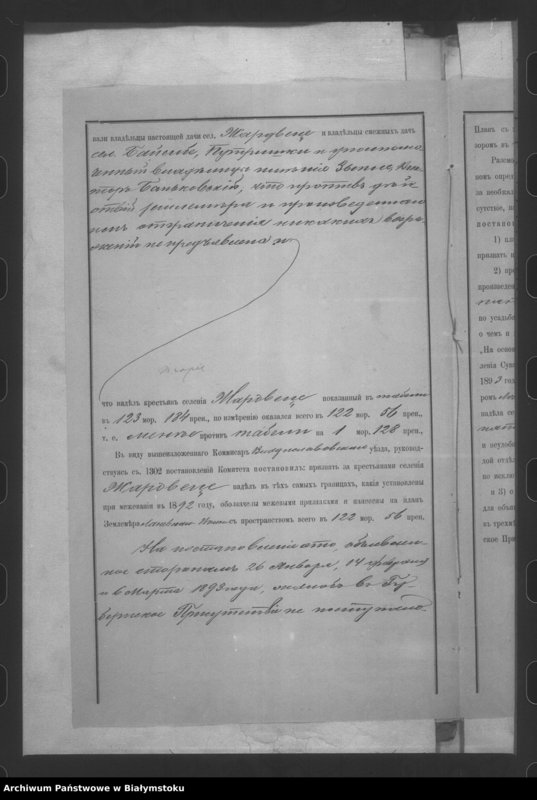 вали владѣльцы настоящей дачи сел. Жаровеце и владѣльцы смежныхъ дачъ
сел. Байебе, Путришки и уполномо-
ченный владѣльца имѣнія
Баньковскій, что противъ дѣй-
ствій землемѣра и произведеннаго
имъ отграниченія никакихъ возра-
женій не предъявила и
что надѣлъ крестьянъ селенія Жаровеце показанный въ табели
въ 123 мор. 184 прен., по измѣренію оказался всего въ 122 мор. 56 прен.,
т. е. менѣе противъ табели на 1 мор. 128 прен.,
Въ виду вышеизложеннаго Комисаръ Владиславовскаго уѣзда, руковод-
ствуясь съ. 1302 постановленій Комитета постановилъ: признать за крестьянами селенія
Жаровеце надѣлъ въ тѣхъ самыхъ границахъ, какія установлены
при межеваніи въ 1892 году, обозначены межевыми признаками и нанесены на планъ
Землемѣра съ пространствомъ всего въ 122 мор. 56 прен.
На постановленіе это, объявлен-
ное сторонамъ 26 Января, 14 Февраля
и 6 Марта 1893 года, жалобъ въ Гу-
бернское Присутствіе не поступало.
Планъ съ
зоромъ въ
Разсмо
ном опред
за необход
сутствіе, по
постанов
1) пл
признать и
2) про
произведен
по усадьб
о чемъ и
„На основ
ленія Сув
189
ромъ
надѣла се
и осуло
дой отдѣл
по исключ
и 3) о
для объя
въ трехмѣ
ское При
Archiwum Państwowe w Białymstoku